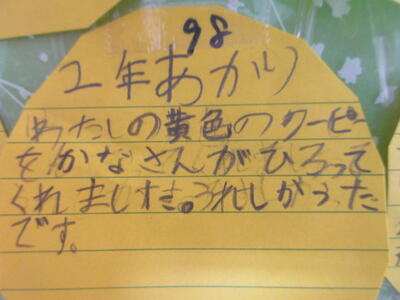 98
2年あかり
わたしの黄色のクーピー
をかなさんがひろって
くれました。うれしかった
です。